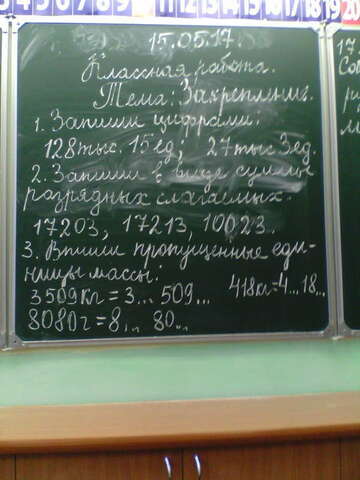 5 6 7 8 9 10 11 12 13 14 15 16 17 18 19 20
15.05.17.
Классная работа.
Тема: Закрепление.
1. Запиши цифрами:
128 тыс. 15 ед; 27 тыс 3 ед.
2. Запиши в виде суммы
разрядных слагаемых.
17203, 17213, 10023.
3. Впиши пропущенные еди-
ницы массы:
3509 кг = 3... 509... 418 кг = 4... 18...
8080 г = 8... 80...